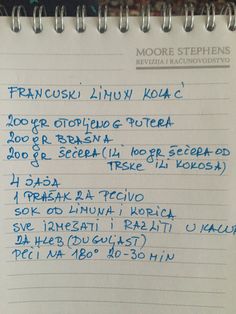 MOORE STEPHENS
REVIZIJA I RAČUNOVODSTVO
FRANCUSKI LIMUN KOLAČ
200 gr OTOPLJENOG PUTERA
200 gr BRAŠNA
200 gr ŠEĆERA (ILI 100 gr ŠEĆERA OD
TRSKE ILI KOKOSA)
4 JAJA
1 PRAŠAK ZA PECIVO
SOK OD LIMUNA I KORICA
SVE IZMEŠATI I RAZLITI U KALUP
ZA HLEB (DUGULJAST)
PEĆI NA 180° 20-30 MIN